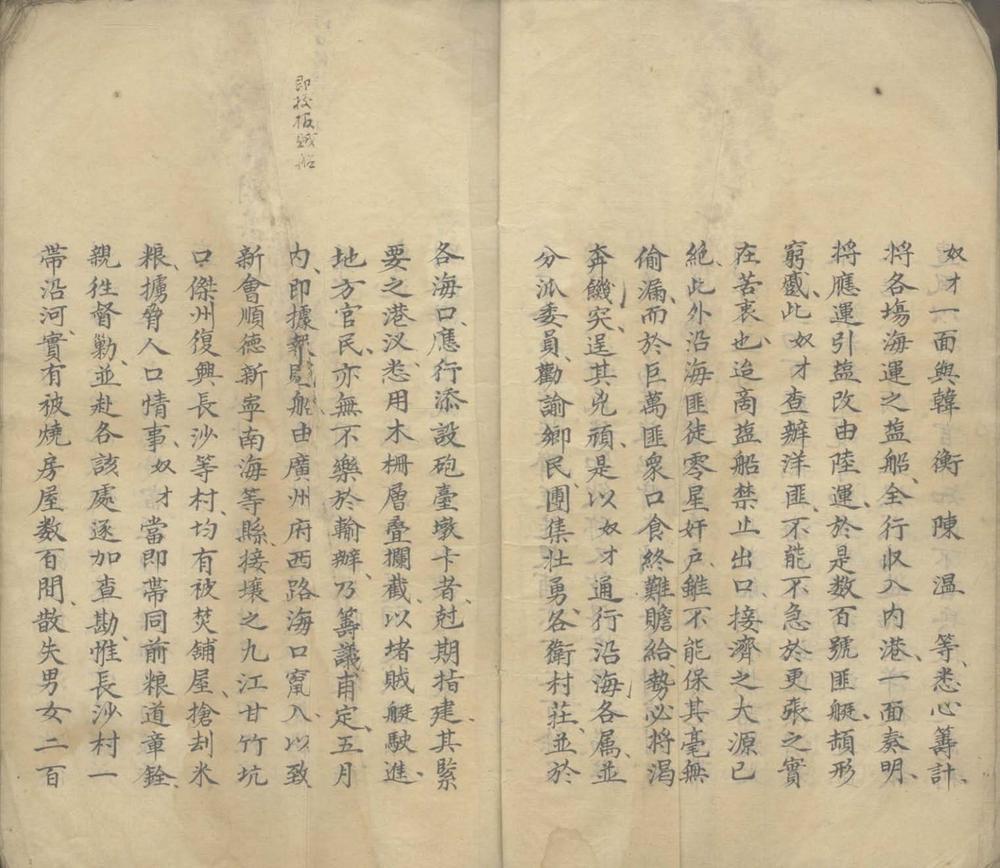 奴才一面與韓 衡陳 溫 等、悉心籌計、
將各塲海運之塩船、全行収入内港、一面奏明、
將應運引塩改由陸運、於是数百號匪艇、頡形
窮蹙、此奴才查辦洋匪、不能不急於更張之實
在苦衷也、迨商塩船禁止出口、接濟之大源已
絶、此外沿海匪徒零星奸戶、雖不能保其毫無
偷漏、而於巨萬匪衆口食終難贍給、勢必將渴
奔饑突、逞其兇頑、是以奴才通行沿海各属、並
分派委員、勸諭鄉民、團集壮勇、各衛村莊、並於
各海口、應行添設砲臺墩卡者、尅期指建、其緊
要之港汊、悉用木栅層叠攔截、以堵賊艇駛進、
地方官民、亦無不樂於輸辦、乃籌議甫定、五月
内、即據報匪船由廣州府西路海口竄入、以致
新會順德新寕南海等縣、接壤之九江甘竹坑
口傑州復興長沙等村、均有被焚舖屋、搶刦米
粮、擄脅人口情事、奴才當即帶同前粮道章銓、
親徃督勦、並赴各該處逐加查勘、惟長沙村一
帶沿河、實有被燒房屋数百間、散失男女二百
即 板賊船